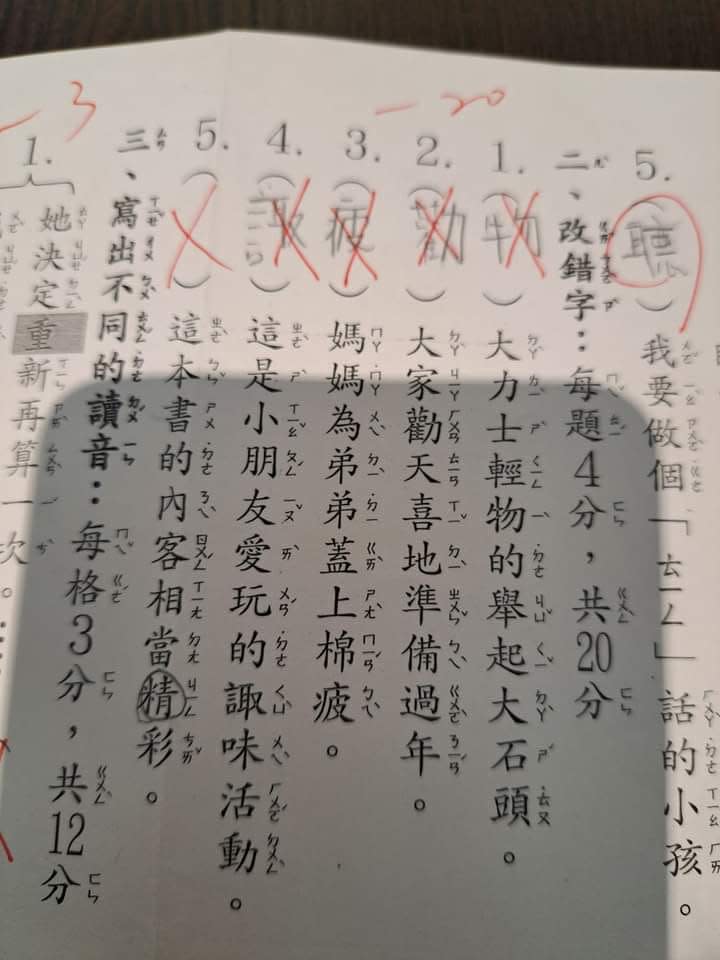 5.（聽）我要做個「ㄊㄧㄥ」話的小孩。
二、改錯字：每題4分，共20分
－20
1.（物）大力士輕物的舉起大石頭。
2.（勸）大家勸天喜地準備過年。
3.（疲）媽媽為弟弟蓋上棉疲。
4.（諏）這是小朋友愛玩的諏味活動。
5.（ ）這本書的內客相當精彩。
三、寫出不同的讀音：每格3分，共12分
－3
1. 她決定重新再算一次。